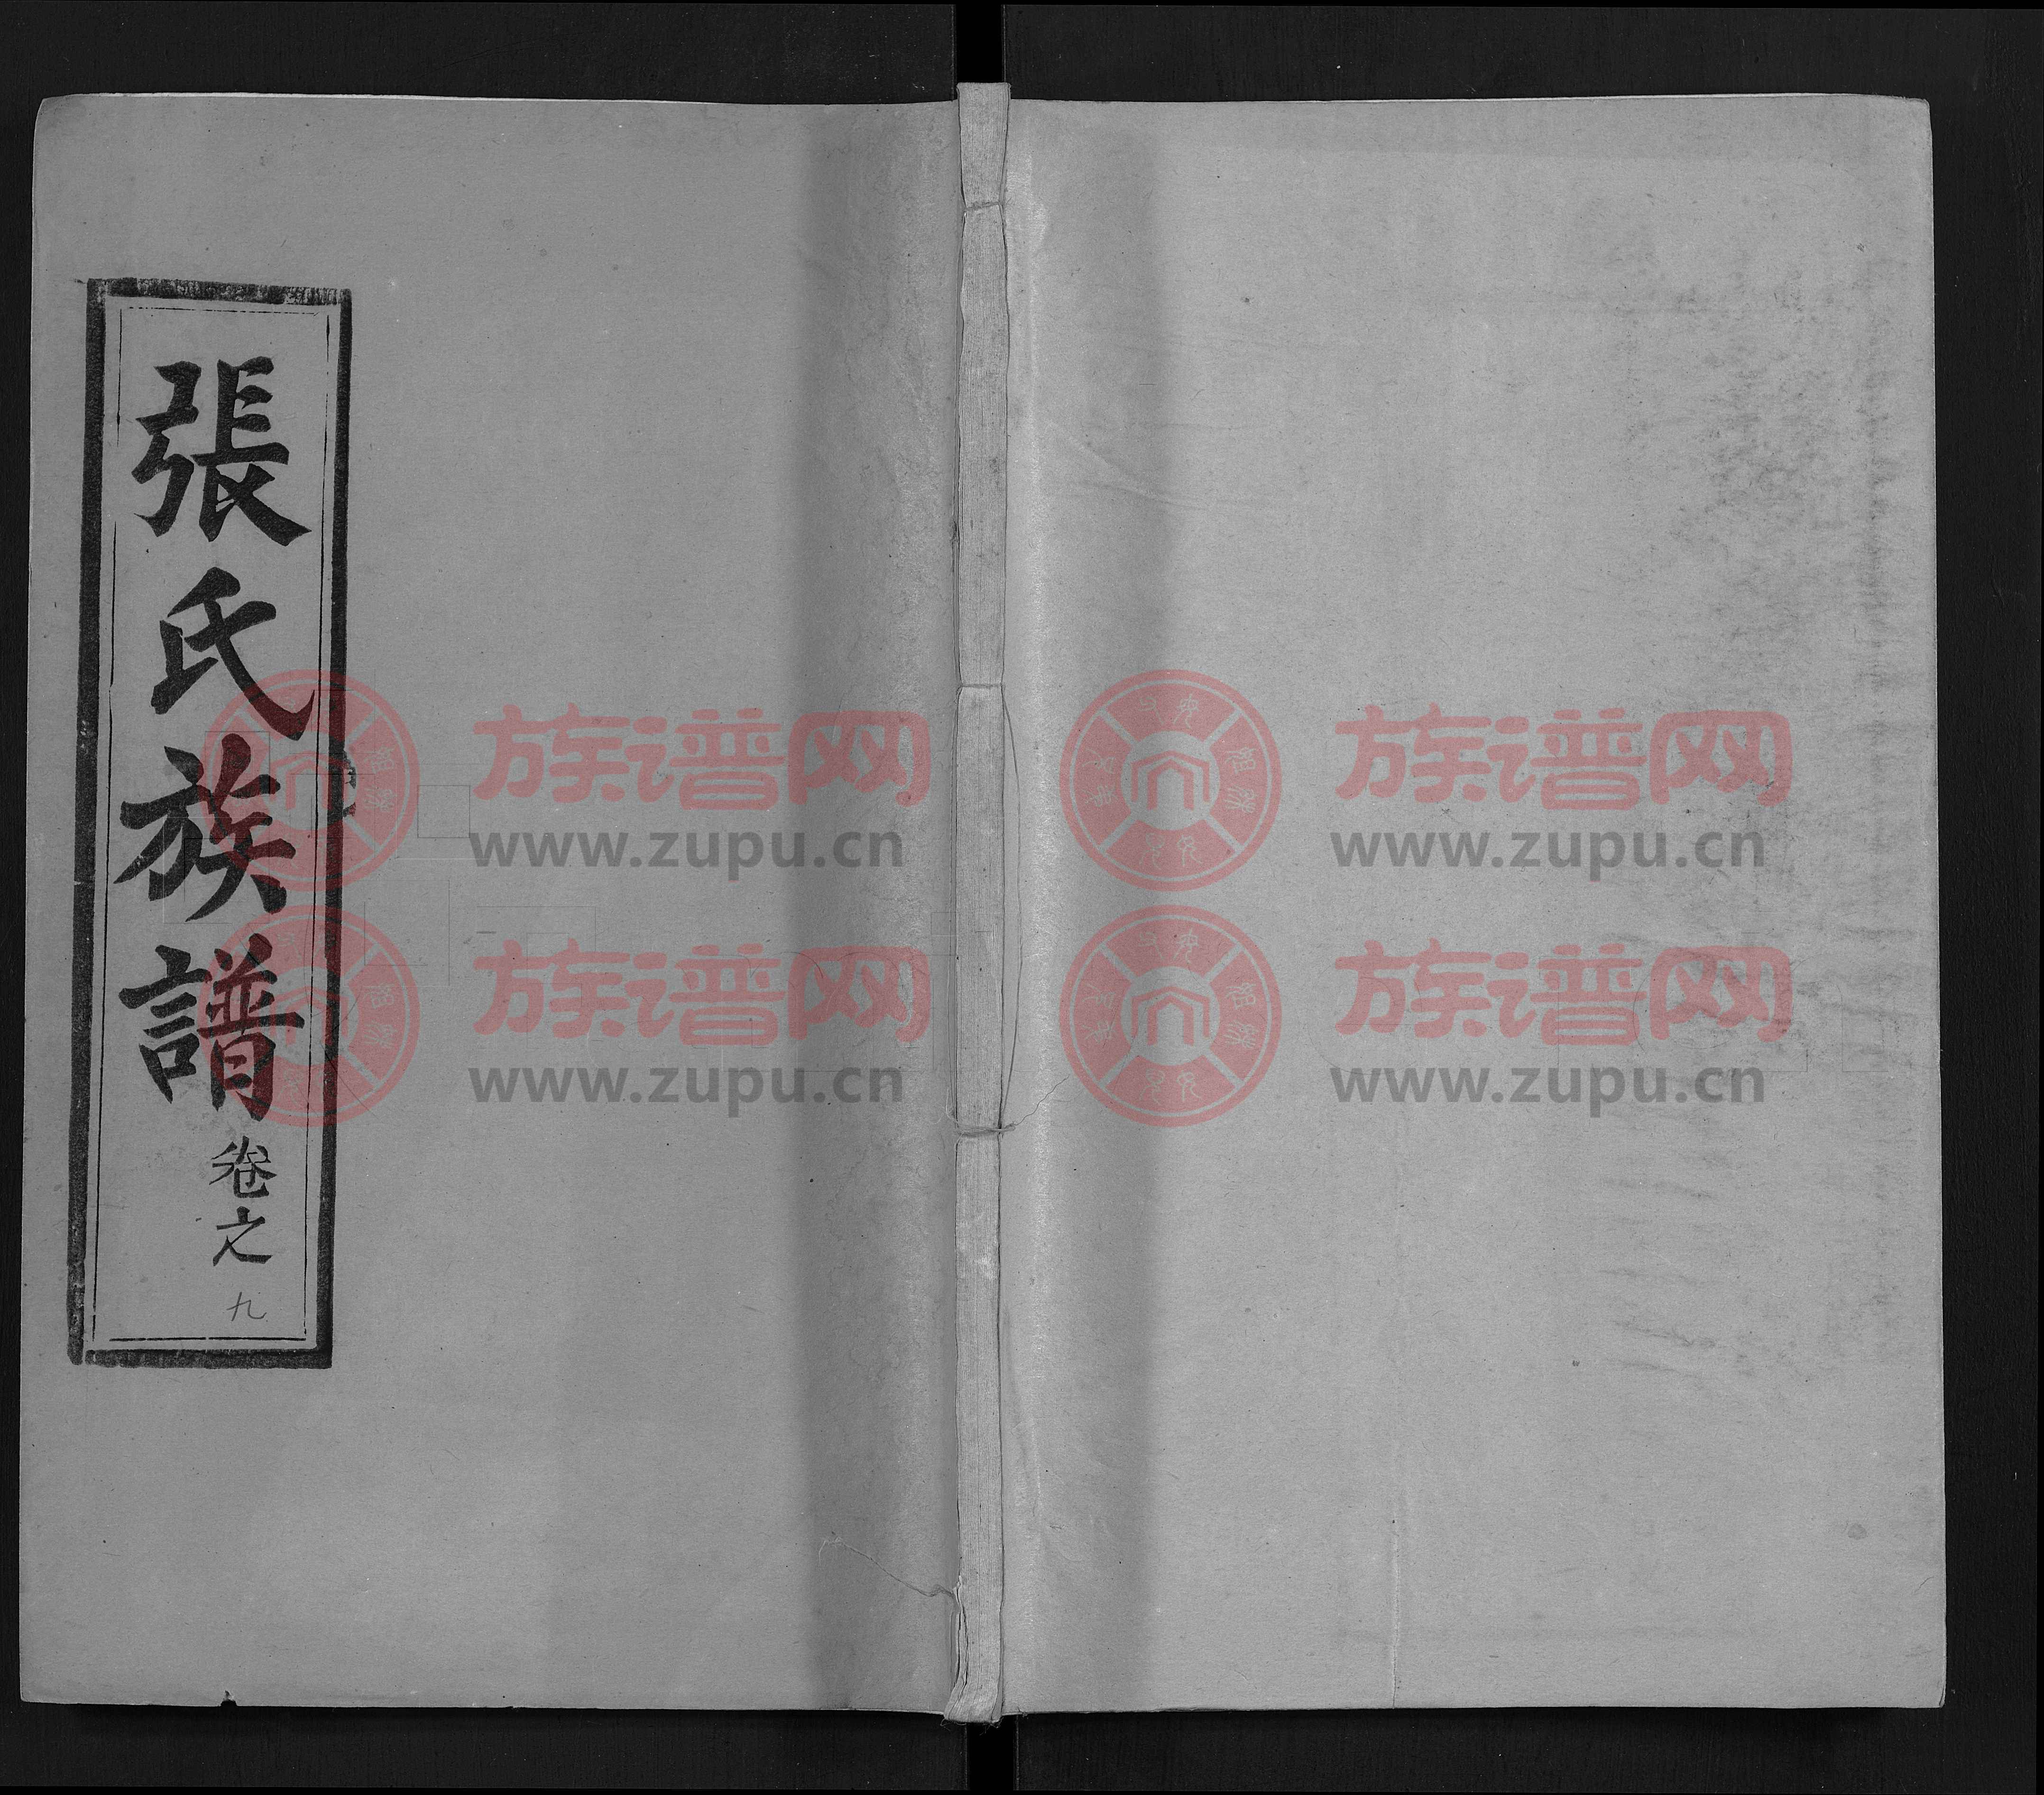 張氏族譜
卷之九
族谱网
www.zupu.cn
族谱网
www.zupu.cn
族谱网
www.zupu.cn
族谱网
www.zupu.cn